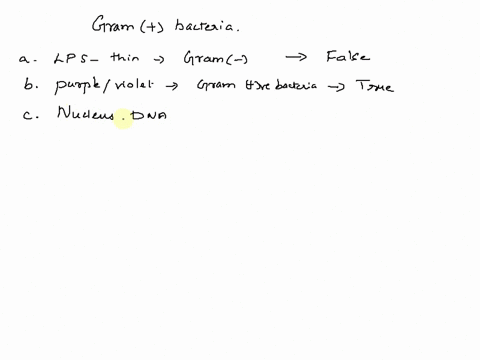 Gram (+) bacteria.
a. LPS - thin → Gram (-) → False
b. purple/violet → Gram (+)ve bacteria → True
c. Nucleus. DNA